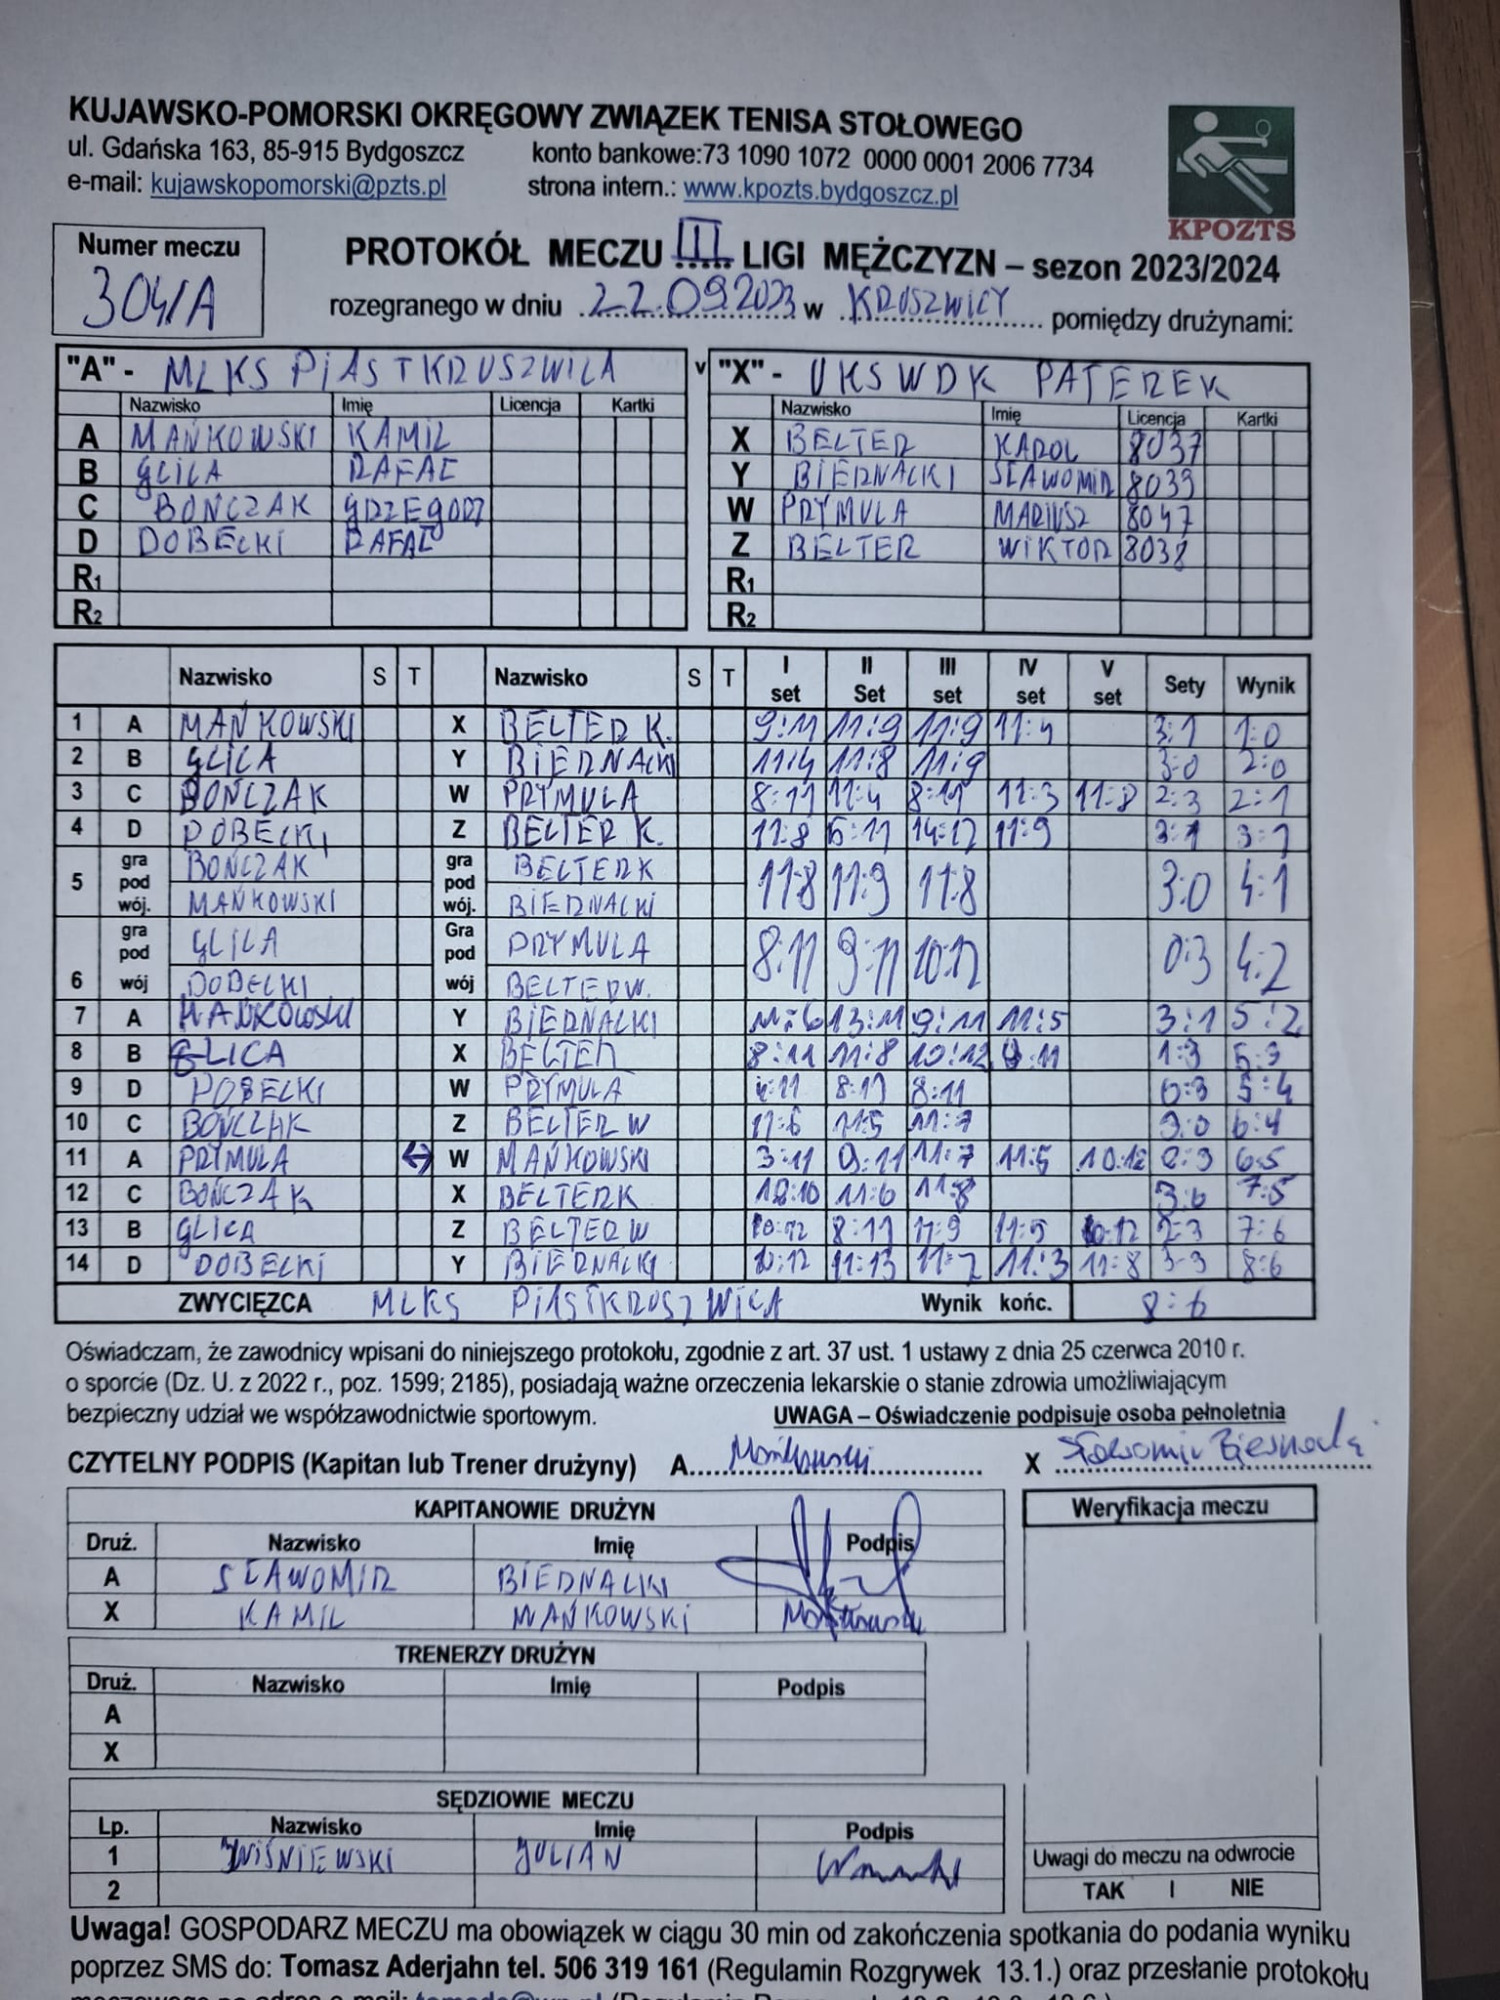 KUJAWSKO-POMORSKI OKRĘGOWY ZWIĄZEK TENISA STOŁOWEGO
ul. Gdańska 163, 85-915 Bydgoszcz konto bankowe:73 1090 1072 0000 0001 2006 7734
e-mail: kujawskopomorski@pzts.pl strona intern.: www.kpozts.bydgoszcz.pl
KPOZTS
Numer meczu
304/A
PROTOKÓŁ MECZU III LIGI MĘŻCZYZN – sezon 2023/2024
rozegranego w dniu 22.09.2023 w KRUSZWICY pomiędzy drużynami:
"A" - MLKS PIAST KRUSZWICA v "X" - UKS WDK PATEREK
Nazwisko Imię Licencja Kartki Nazwisko Imię Licencja Kartki
A MAŃKOWSKI KAMIL X BELTER KAROL 8037
B GLICA RAFAŁ Y BIERNACKI SŁAWOMIR 8039
C BOŃCZAK GRZEGORZ W PRYMULA MARIUSZ 8047
D DOBECKI RAFAŁ Z BELTER WIKTOR 8038
R1 R1
R2 R2
Nazwisko S T Nazwisko S T I set II Set III set IV set V set Sety Wynik
1 A MAŃKOWSKI X BELTER K. 9:11 11:9 11:9 11:4 3:1 1:0
2 B GLICA Y BIERNACKI 11:4 11:8 11:9 3:0 2:0
3 C BOŃCZAK W PRYMULA 8:11 11:4 8:11 11:3 11:8 2:3 2:1
4 D DOBECKI Z BELTER K. 11:8 6:11 14:12 11:9 3:1 3:1
5 gra pod wój. BOŃCZAK MAŃKOWSKI gra pod wój. BELTER K BIERNACKI 11:8 11:9 11:8 3:0 4:1
6 gra pod wój GLICA DOBECKI Gra pod wój PRYMULA BELTER W. 8:11 9:11 10:12 0:3 4:2
7 A MAŃKOWSKI Y BIERNACKI 11:6 13:11 9:11 11:5 3:1 5:2
8 B GLICA X BELTER 8:11 11:8 10:12 9:11 1:3 5:3
9 D DOBECKI W PRYMULA 4:11 8:11 8:11 0:3 5:4
10 C BOŃCZAK Z BELTER W 11:6 11:5 11:7 3:0 6:4
11 A PRYMULA ↔ W MAŃKOWSKI 3:11 9:11 11:7 11:5 10:12 2:3 6:5
12 C BOŃCZAK X BELTER K 12:10 11:6 11:8 3:0 7:5
13 B GLICA Z BELTER W 10:12 8:11 11:9 11:9 10:12 2:3 7:6
14 D DOBECKI Y BIERNACKI 10:12 11:13 11:7 11:3 11:8 3-3 8:6
ZWYCIĘZCA MLKS PIAST KRUSZWICA Wynik końc. 8:6
Oświadczam, że zawodnicy wpisani do niniejszego protokołu, zgodnie z art. 37 ust. 1 ustawy z dnia 25 czerwca 2010 r.
o sporcie (Dz. U. z 2022 r., poz. 1599; 2185), posiadają ważne orzeczenia lekarskie o stanie zdrowia umożliwiającym
bezpieczny udział we współzawodnictwie sportowym. UWAGA – Oświadczenie podpisuje osoba pełnoletnia
CZYTELNY PODPIS (Kapitan lub Trener drużyny) A Mańkowski X Sławomir Biernacki
KAPITANOWIE DRUŻYN
Druż. Nazwisko Imię Podpis
A SŁAWOMIR BIERNACKI
X KAMIL MAŃKOWSKI Mańkowski
Weryfikacja meczu
TRENERZY DRUŻYN
Druż. Nazwisko Imię Podpis
A
X
SĘDZIOWIE MECZU
Lp. Nazwisko Imię Podpis
1 WIŚNIEWSKI JULIAN
2
Uwagi do meczu na odwrocie
TAK I NIE
Uwaga! GOSPODARZ MECZU ma obowiązek w ciągu 30 min od zakończenia spotkania do podania wyniku
poprzez SMS do: Tomasz Aderjahn tel. 506 319 161 (Regulamin Rozgrywek 13.1.) oraz przesłanie protokołu